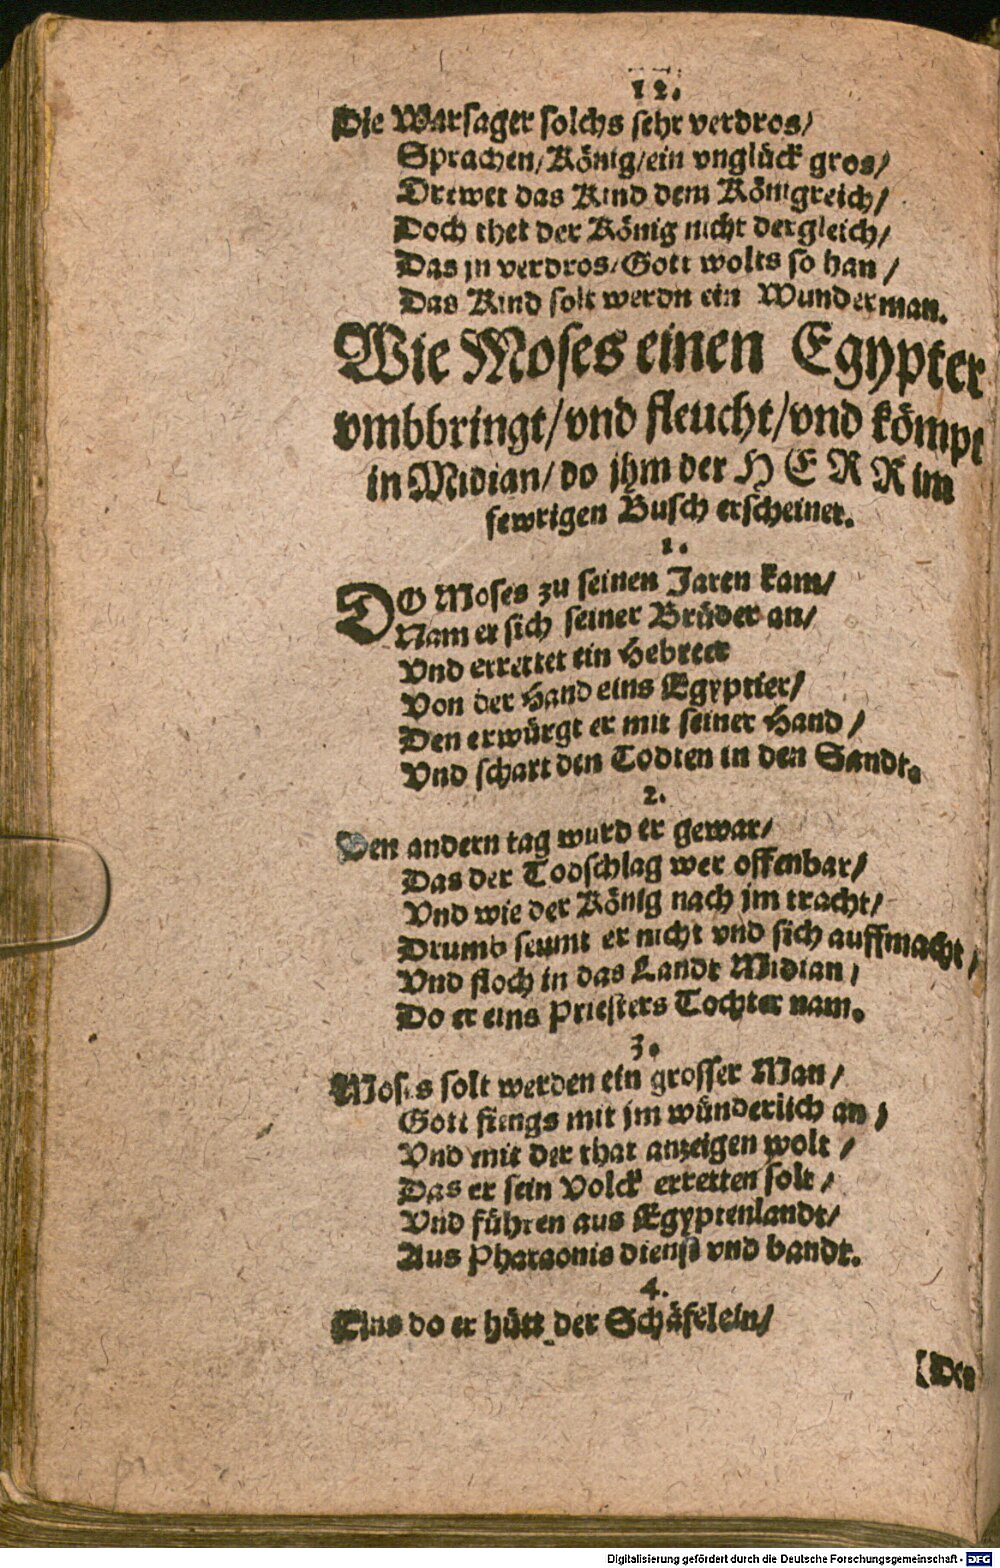 12.
Die Warsager solchs sehr verdros/
Sprachen/König/ein vnglück gros/
Drewet das Kind dem Königreich/
Doch thet der König nicht dergleich/
Das jn verdros/Gott wolts so han/
Das Kind solt werdn ein Wunderman.
Wie Moses einen Egypter
vmbbringt/vnd fleucht/vnd kömpt
in Midian/do jhm der HERR im
fewrigen Busch erscheinet.
1.
DO Moses zu seinen Jaren kam/
Nam er sich seiner Brüder an/
Vnd errettet ein Hebreer
Von der Hand eins Egyptier/
Den erwürgt er mit seiner Hand/
Vnd schart den Todten in den Sandt.
2.
Den andern tag wurd er gewar/
Das der Todschlag wer offenbar/
Vnd wie der König nach jm tracht/
Drumb seumt er nicht vnd sich auffmacht/
Vnd floch in das Landt Midian/
Do er eins Priesters Tochter nam.
3.
Moses solt werden ein grosser Man/
Gott fiengs mit jm wünderlich an/
Vnd mit der that anzeigen wolt/
Das er sein Volck erretten solt/
Vnd führen aus Egyptenlandt/
Aus Pharaonis dienst vnd bandt.
4.
Eins do er hütt der Schäfelein/
Den
Digitalisierung gefördert durch die Deutsche Forschungsgemeinschaft - DFG